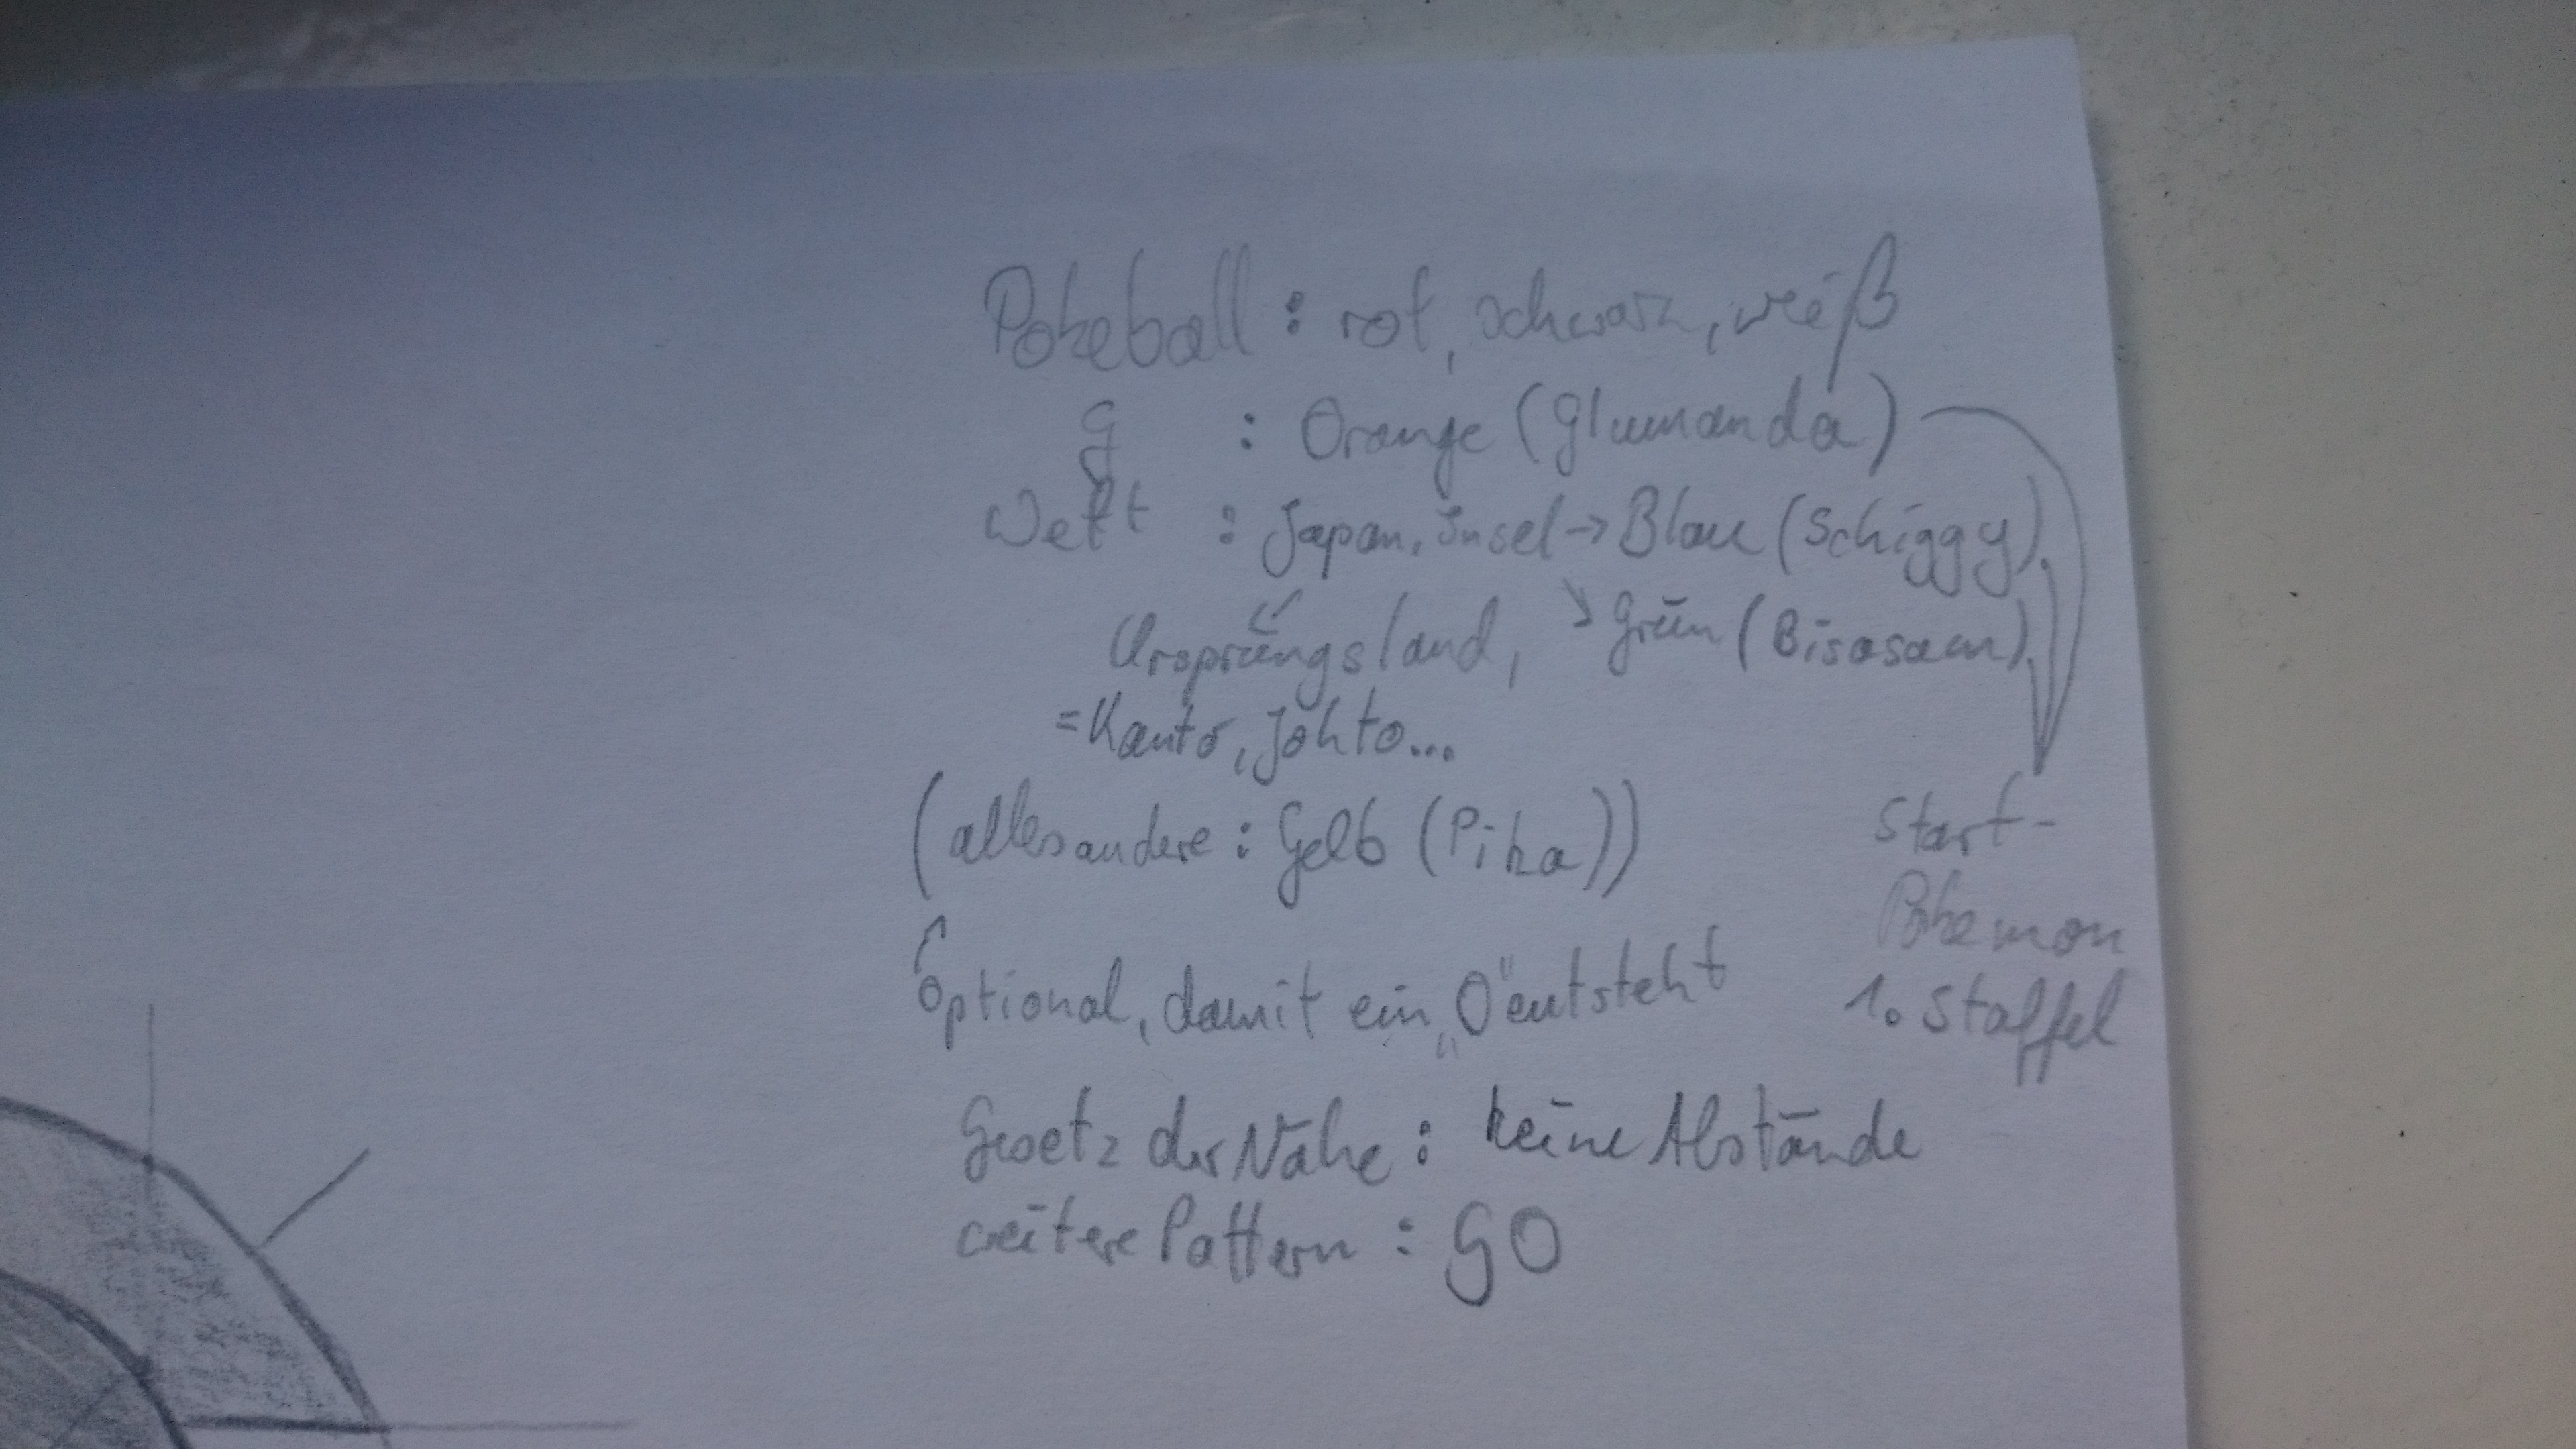 Pokeball : rot, schwarz, weiß
G : Orange (Glumanda)
Welt : Japan, Insel → Blau (Schiggy)
Ursprungsland, ↘ Grün (Bisasam)
= Kanto, Johto...
(alles andere : Gelb (Pika))
Start-
Pokemon
1. Staffel
optional, damit ein „O" entsteht
Gesetz der Nähe : keine Abstände
weitere Pattern : GO